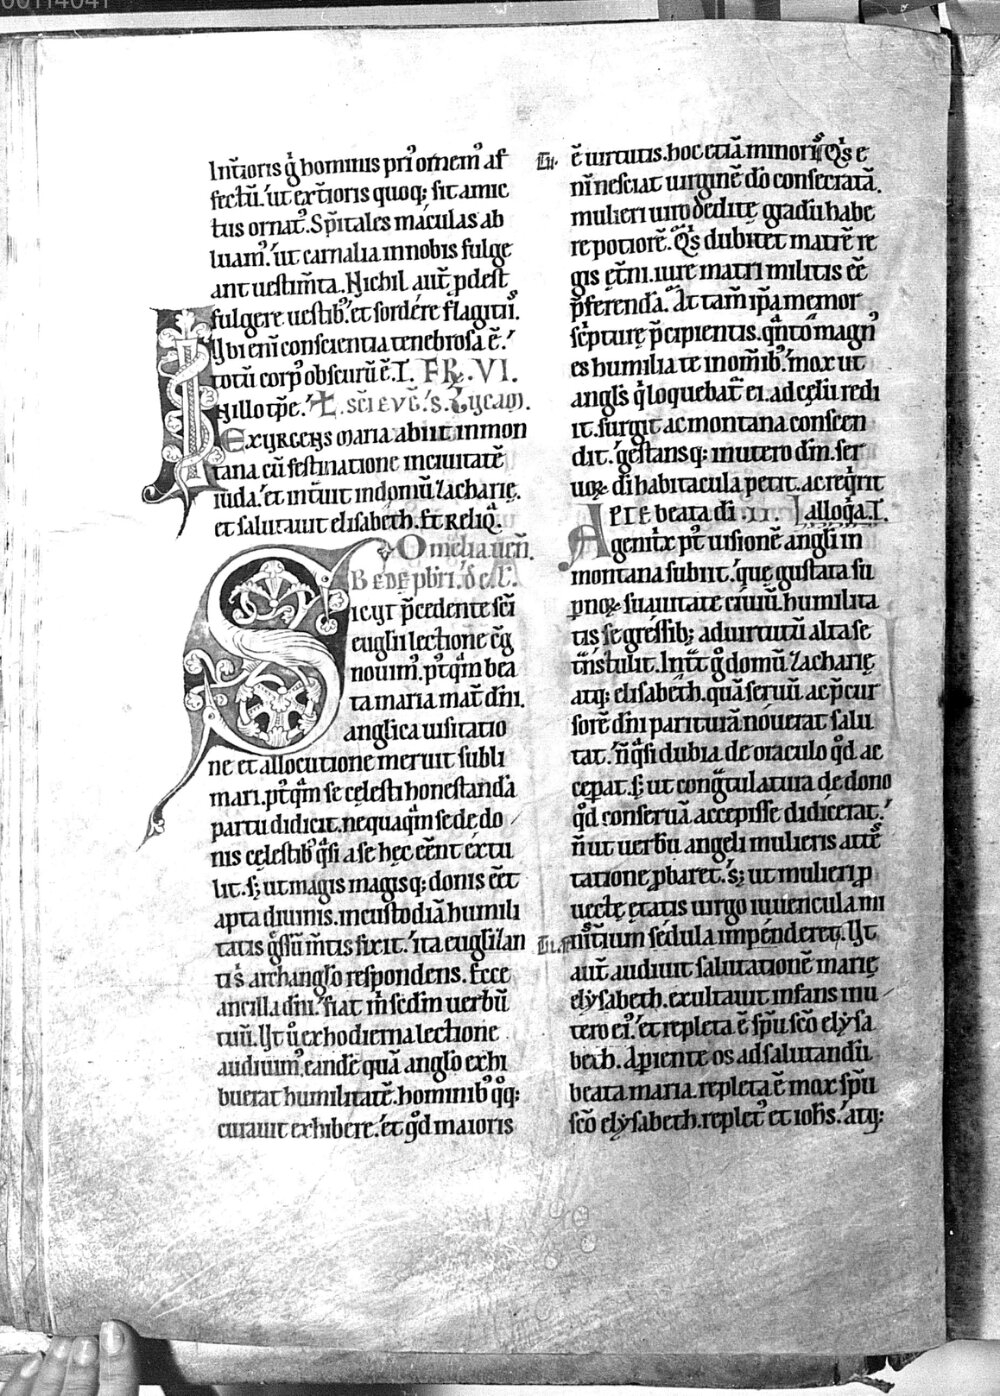 00114041
Int̄ioris g̊ hominis pri᷒ ornem᷒ af
fectū. ut ext̄ioris quoq; sit amic
tus ornat᷒. Sp̄itales maculas ab
luam᷒. ut carnalia in nobis fulge
ant uestim̄ta. Nichil aut̄ pdest
fulgere uestib᷒. et sordere flagitii᷒.
Ubi eni conscientia tenebrosa ē.
totū corp᷒ obscurū ē. FR̄. VI.
In illo tp̄e. sc̄i euḡ. s. Lucam.
Exurgens maria abiit in mon
tana cū festinatione in ciuitatē
iuda. et int̄uit in domū zacharię.
et salutauit elisabeth. Et reliq̄.
Omelia uen̄.
Bede pbr̄i. de
icut p̄cedente sc̄i
euglii lectione cḡ
nouim᷒. p᷒tq̄m bea
ta maria mat̄ dn̄i.
anglica uisitatio
ne et allocutione meruit subli
mari. p᷒tq̄m se celesti honestandā
partu didicit. nequaq̄m se de do
nis celestib᷒ q̄si a se hec cēnt extu
lit. s; ut magis magisq; donis cēt
apta diuinis. in custodiā humili
tatis g̊ssū m̄tis fixit. ita euglizan
ti s. archanglo respondens. Ecce
ancilla dn̄i. fiat m̄ sedm uerbū
tuū. Ut ů ex hodierna lectione
audiuim᷒. eandē quā anglo exhi
buerat humilitatē. hominib᷒ q̊q;
curauit exhibere. et q̊d maioris
ē uirtutis. hoc etiā minorib᷒. Q᷒s e
ni nesciat uirginē do consecratā.
mulieri uiro dedite gradū habe
re potiorē. Q᷒s dubitet matrē re
gis et̄ni. iure matri militis ēē
p̄ferendā. At tam̄ ip̄a memor
sc̄pture p̄cipientis. q̄nto magn᷒
es humilia te in om̄ib᷒. mox ut
angls q̊ loquebat̄ ei. ad celū redi
it. surgit ac montana conscen
dit. gestansq; in utero dm̄. ser
uoꝝ di habitacula petit. ac req̊rit
Apte beata di alloq̄a.
genit̊x p᷒t uisionē angli in
montana subiit. que gustata su
pnoꝝ suauitate ciuiū. humilita
tis se gressib; ad uirtutū alta se
t̄nstulit. Int̄t g̊ domū zacharię
atq; elisabeth. quā seruū ac p̄cur
sorē dn̄i parituram nouerat salu
tat. n̄ q̄si dubia de oraculo q̊d ac
cepat. s; ut congtulatura de dono
q̊d conseruā accepisse didicerat.
n̄ ut uerbū angeli mulieris attes
tatione pbaret. s; ut mulieri p
uecte etatis uirgo iuuencula mi
nist̄ium sedula impenderet. Ut
aut̄ audiuit salutationē marię
elysabeth. exultauit infans in u
tero ei᷒. et repleta ē sp̄u sc̄o elysa
beth. Apiente os ad salutandū
beata maria. repleta ē mox sp̄u
sc̄o elysabeth. replet᷒ et ioh̄s. atq;